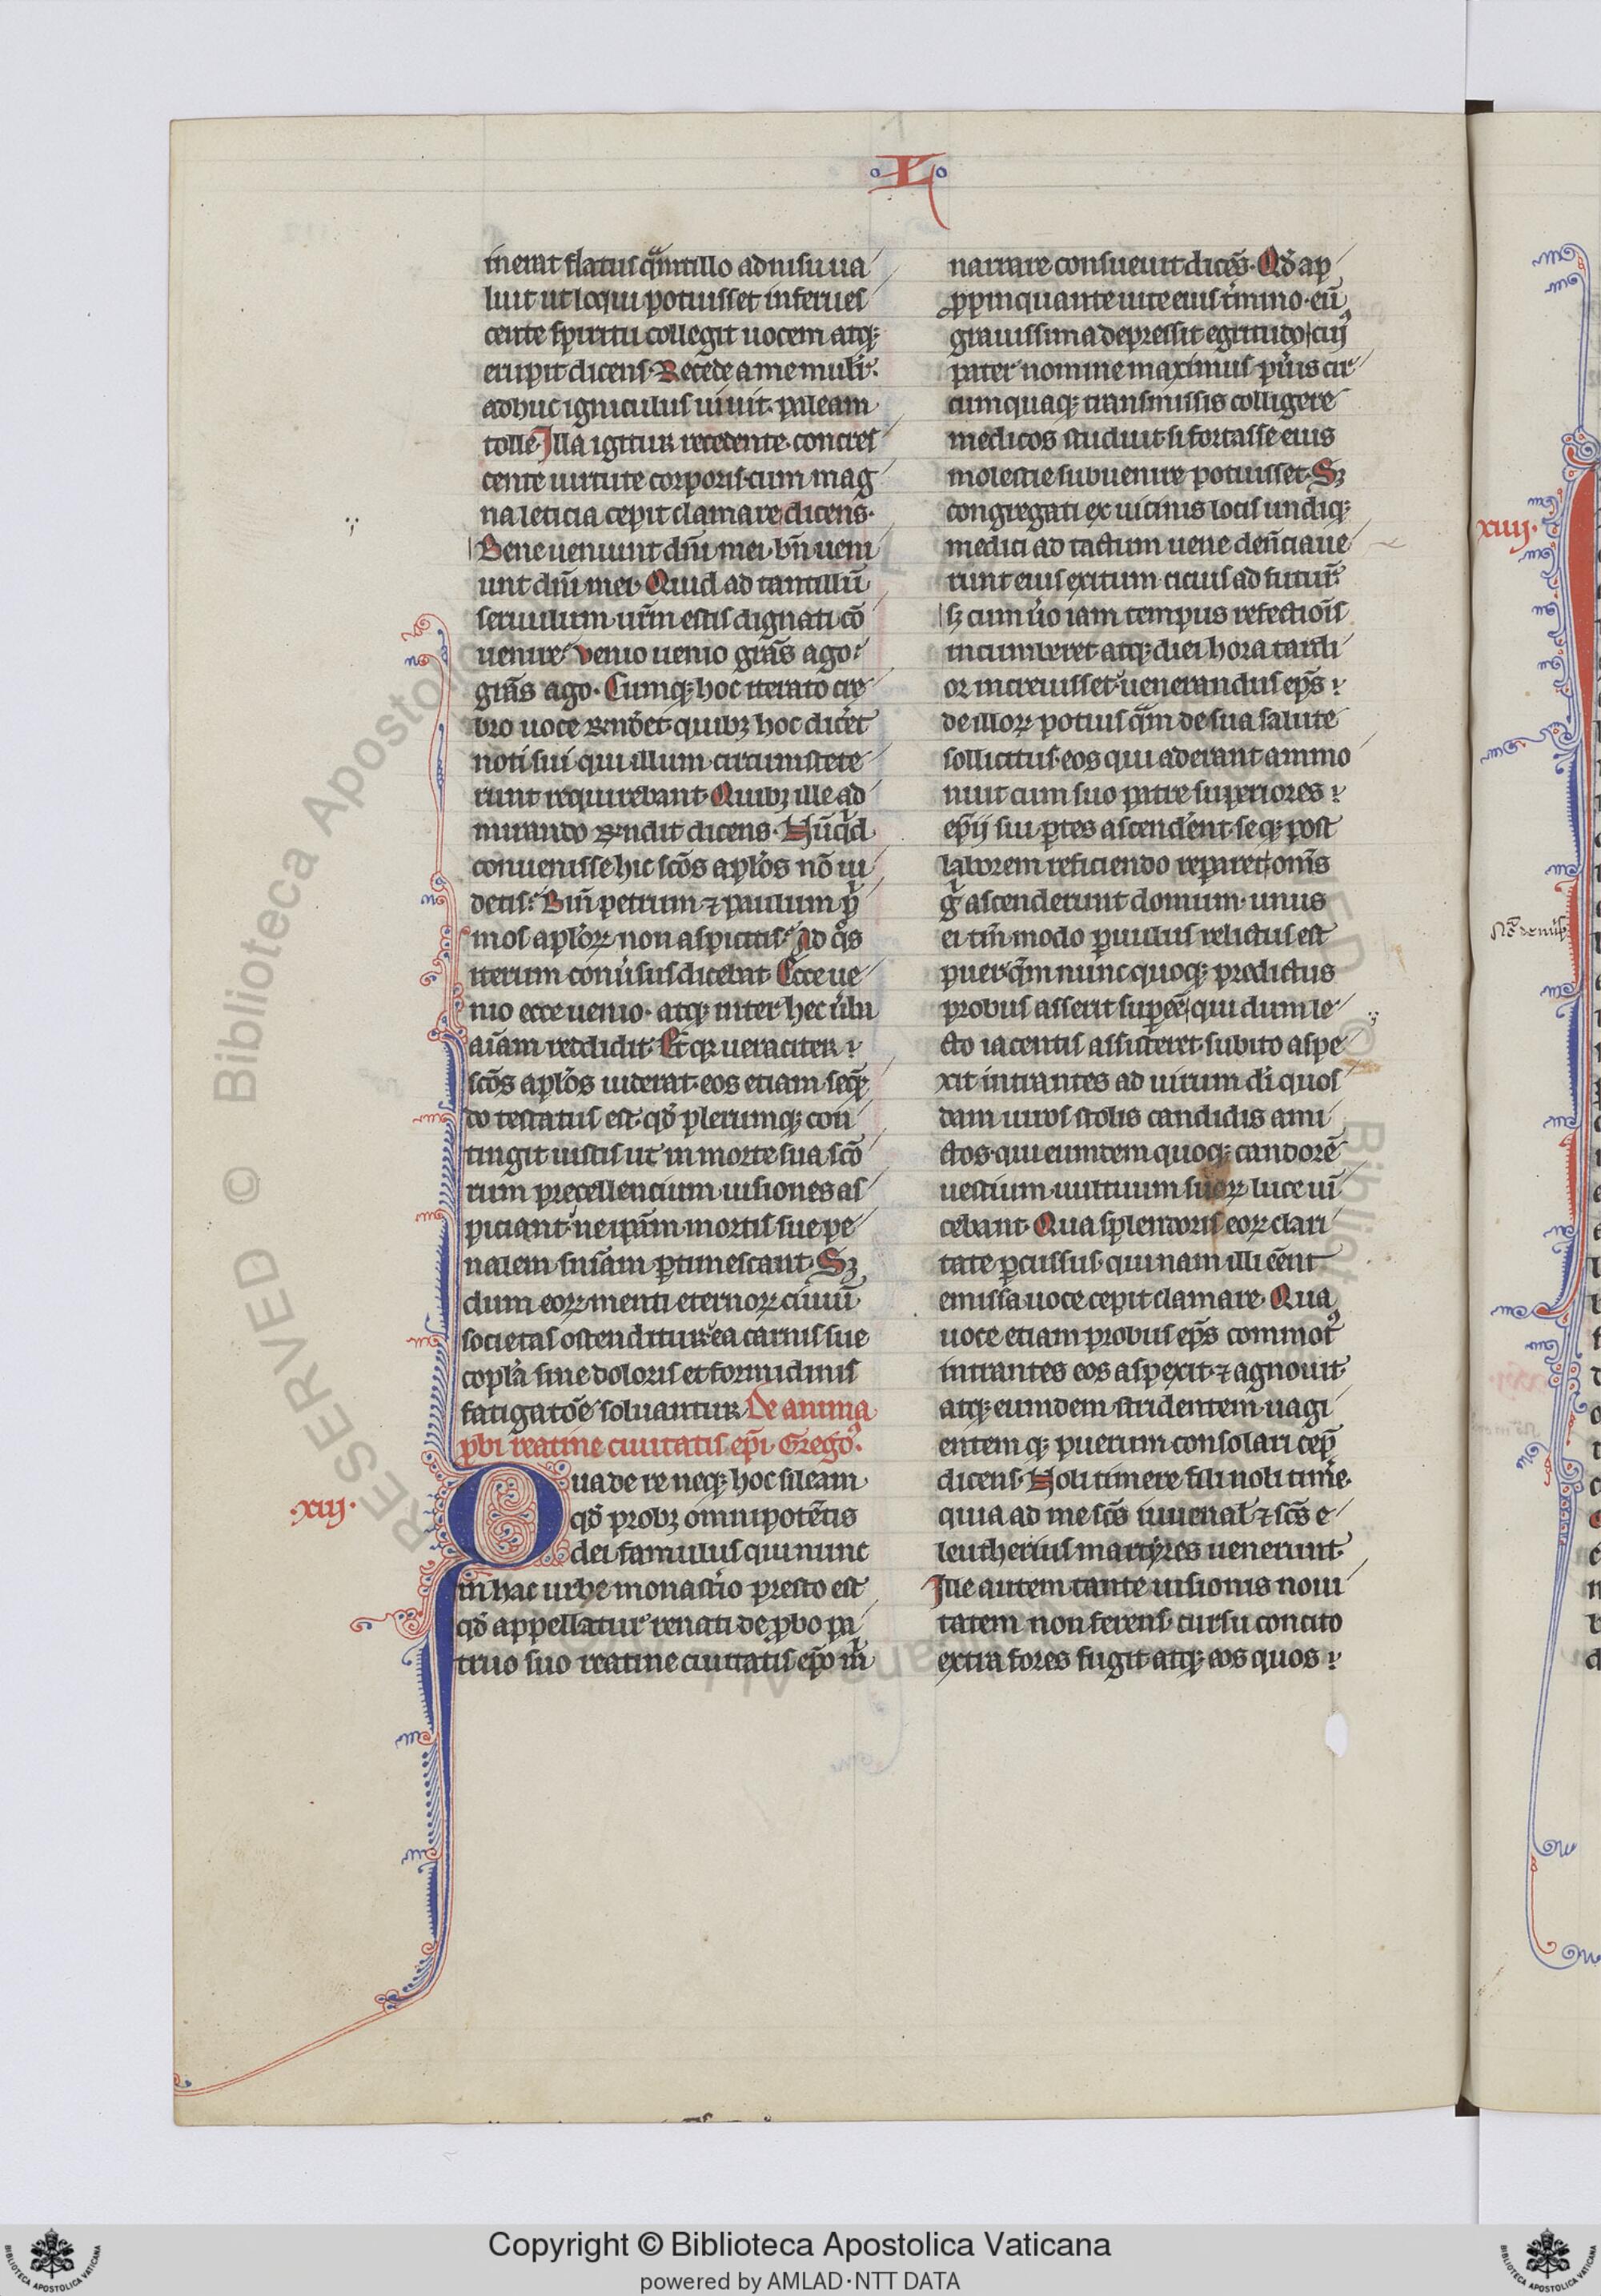 L
inerat flatus qͣm illo adnisu ua
luit ut loqui potuisset inferues
cente spiritu collegit uocem atq;
erupit dicens. Recede a me muli᷑.
adhuc igniculus uiuit. paleam
tolle. Illa igitur recedente. concres
cente uirtute corporis. cum mag
na leticia cepit clamare dicens.
Bene ueniunt dn̄i mei. bn̄ ueni
unt dn̄i mei. Quid ad tantillū
seruulum ur̄m estis dignati cō
uenire. Venio uenio grās ago.
grās ago. Cumq; hoc iterato cre
bro uoce quibꝫ hoc dic̄et
noti sui qui illum circumstete
runt requirebant. Quibꝫ ille ad
mirando dicens. Nūq̇d
conuenisse hic scōs aplōs nō ui
detis. Bm̄ petrum ⁊ paulum ṗ
mos aplōꝝ non aspicitis. Ad q̇s
iterum conūsus dicebat. Ecce ue
nio ecce uenio. atq; inter hec ūba
aīam reddidit. Et qꝛ ueraciter
scōs aplōs uiderat. eos etiam seq̄
do testatus est. qđ plerumq; con
tingit iustis ut in morte sua scō
rum precellencium uisiones as
piciant. ne ip̄am mortis sue pe
nalem sn̄iam ꝑtimescant. Sꝫ
dum eoꝝ menti eternoꝝ ciuiū
societas ostenditur. ea carnis sue
copl̄a sine doloris et formidinis
fatigatōe soluantur. De anima
ꝓbi reatine ciuitatis ep̄i. Grego᷒.
.xiij. Qua de re neq; hoc sileam
qđ probꝫ omnipotētis
dei famulus qui nunc
in hac urbe monast̄io presto est
qđ appellatur renati de ꝓbo pa
truo suo reatine ciuitatis ep̄o m̄
narrare consueuit dicēs. Qđ ap
ꝓpinquante uite eius t̄mino. eū
grauissima depressit egritudo. cui᷒
pater nomine maximus pūis cir
cumquaq; transmissis colligere
medicos studuit. si fortasse eius
molestie subuenire potuisset. Sꝫ
congregati ex uicinis locis undiq;
medici ad tactum uene denūciaue
runt eius exitum cicius ad futur̄.
sꝫ cum u̇o iam tempus refectiōis
incumberet atq; diei hora tardi
or increuisset. uenerandus ep̄s
de illoꝝ potius qͣm de sua salute
sollicitus. eos qui aderant ammo
nuit cum suo patre superiores
ep̄ij sui ꝑtes ascend̄ent. seq; post
laborem reficiendo reparet. om̄s
g̊ ascenderunt domum. unus
ei tm̄ modo ꝑuulus relictus est
puer. qͣm nunc quoq; predictus
probus asserit suꝑēe. qui dum le
cto iacentis assisteret. subito aspe
xit intrantes ad uirum dī quos
dam uiros stolis candidis ami
ctos. qui eumdem quoq; candorē
uestium. uultuum suoꝝ luce ui
cebant. Qua splendoris eoꝝ clari
tate ꝑcussus. quinam illi eēnt
emissa uoce cepit clamare. Qua
uoce etiam probus ep̄s commot᷒
intrantes eos aspexit. ⁊ agnouit.
atq; eumdem stridentem. uagi
entem q; puerum consolari cep̄
dicens. Noli timere fili noli tim̄e.
quia ad me scs̄ iuuenał. ⁊ scs̄ e
leutherius martyres uenerunt.
Ille autem tante uisionis noui
tatem non ferens. cursu concito
extra fores fugit. atq; eos quos
xiiij.
RESERVED © Biblioteca Apostolica
Copyright © Biblioteca Apostolica Vaticana
powered by AMLAD·NTT DATA
BIBLIOTECA APOSTOLICA VATICANA
BIBLIOTECA APOSTOLICA VATICANA